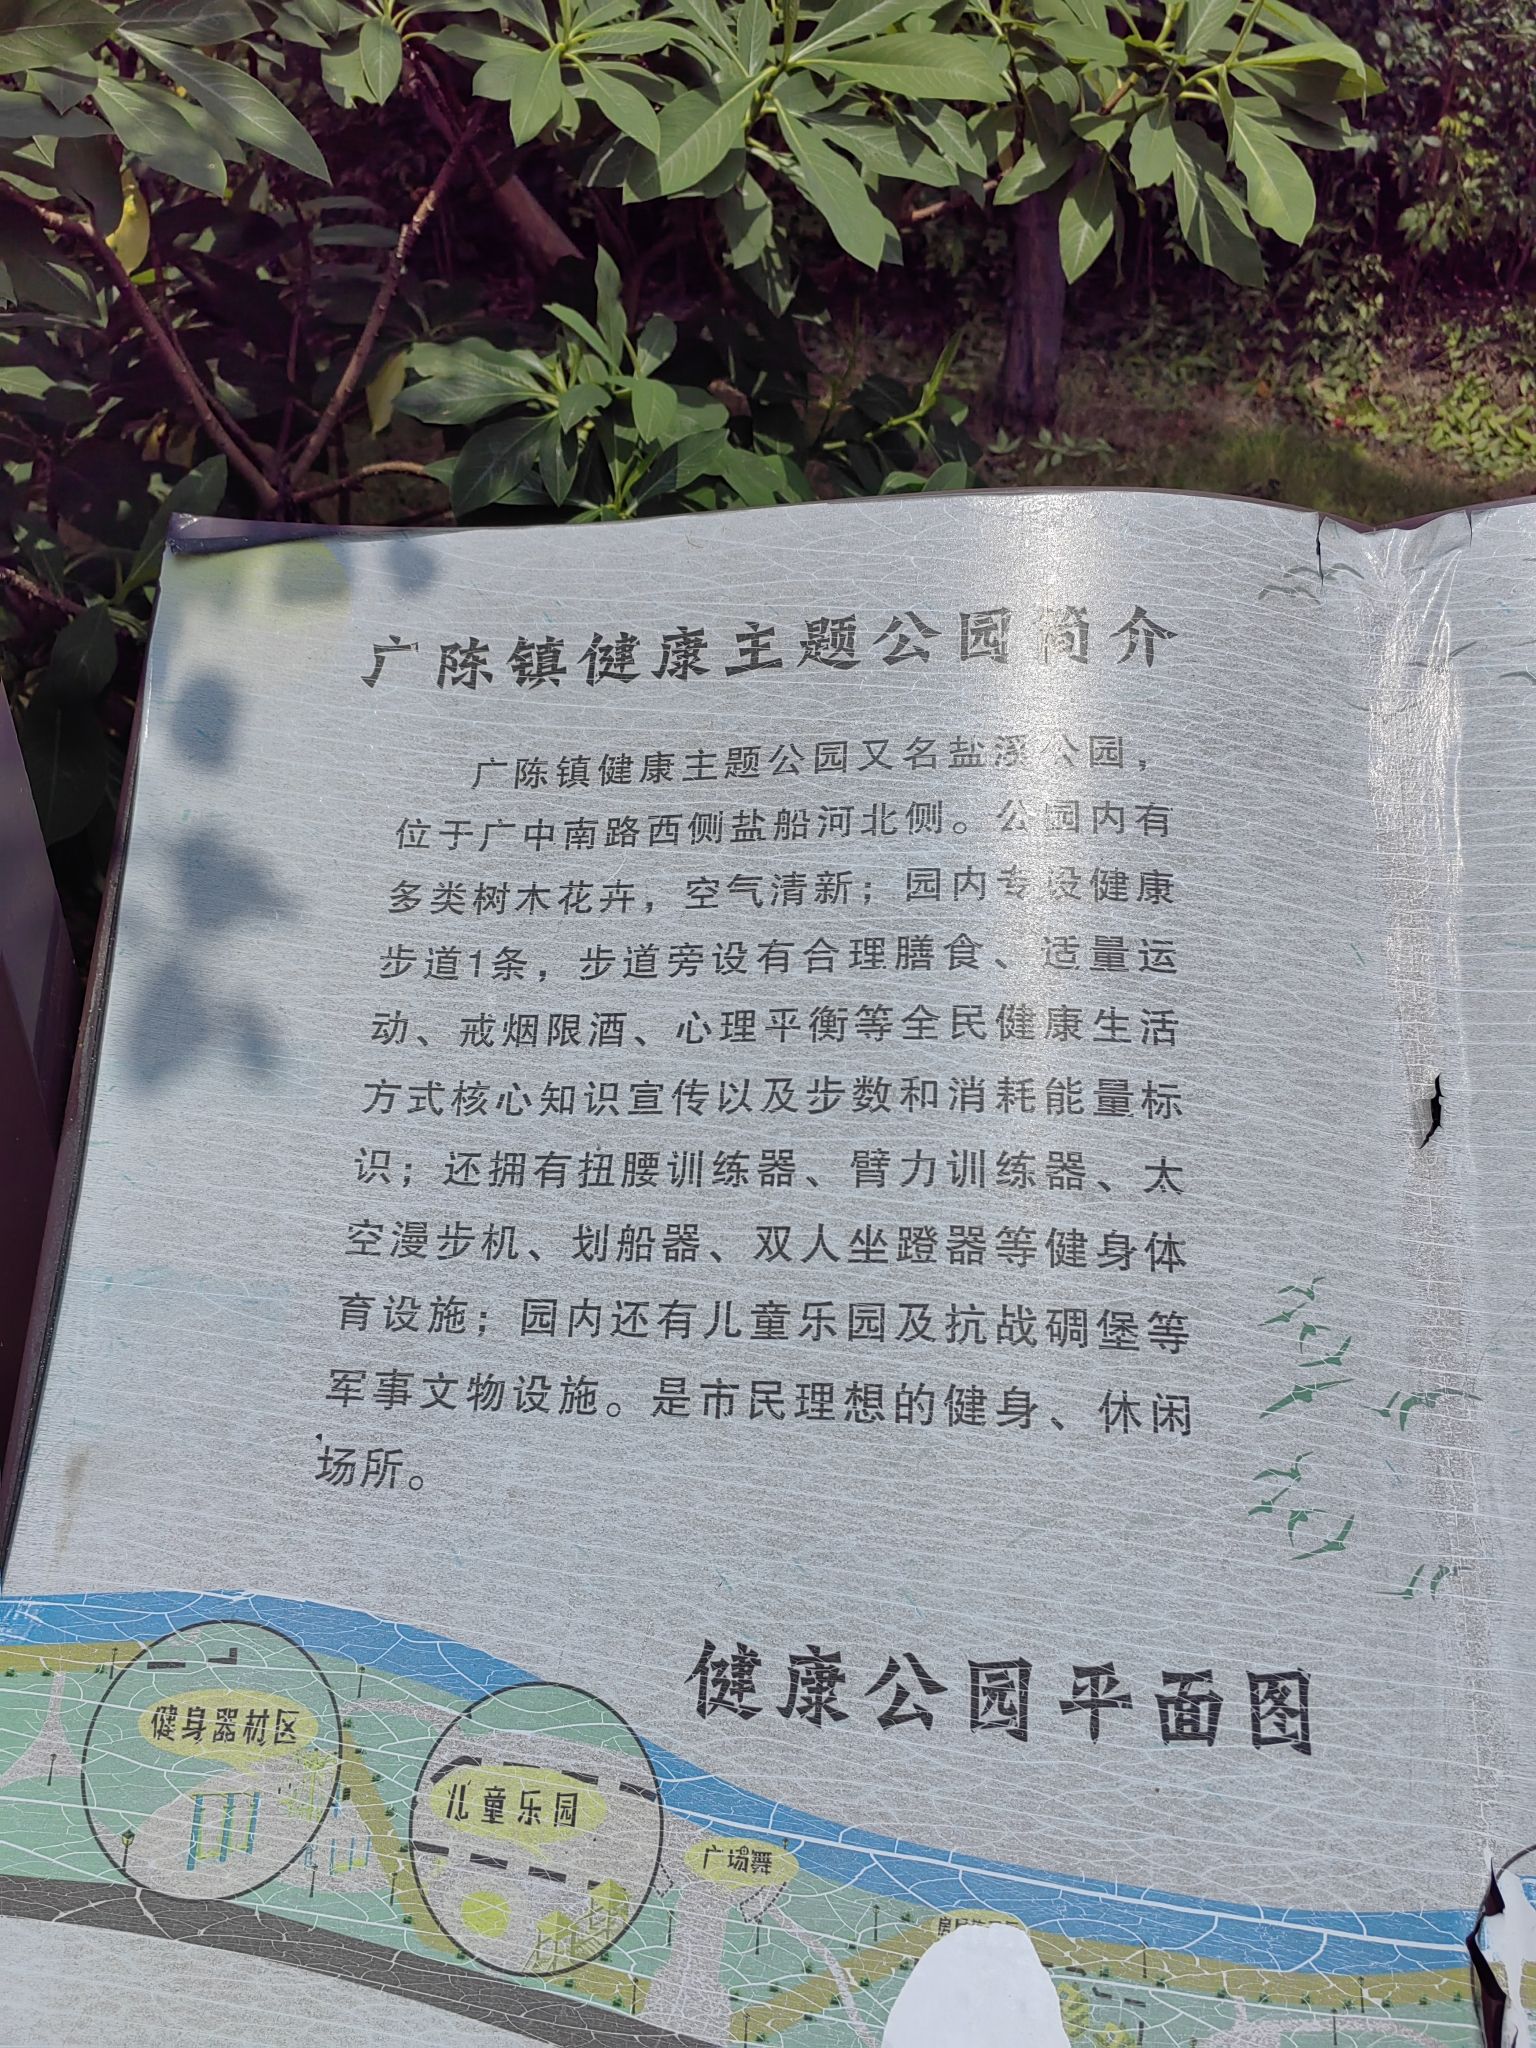 广陈镇健康主题公园简介
广陈镇健康主题公园又名盐溪公园，
位于广中南路西侧盐船河北侧。公园内有
多类树木花卉，空气清新；园内专设健康
步道1条，步道旁设有合理膳食、适量运
动、戒烟限酒、心理平衡等全民健康生活
方式核心知识宣传以及步数和消耗能量标
识；还拥有扭腰训练器、臂力训练器、太
空漫步机、划船器、双人坐蹬器等健身体
育设施；园内还有儿童乐园及抗战碉堡等
军事文物设施。是市民理想的健身、休闲
场所。
健康公园平面图
健身器材区
儿童乐园
广场舞